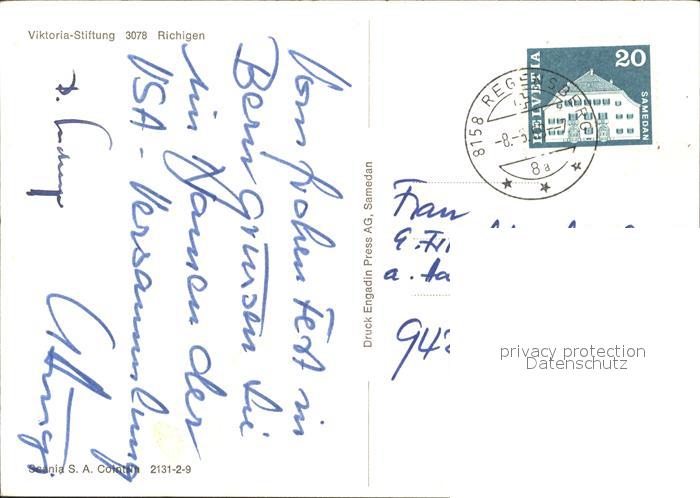 Viktoria-Stiftung 3078 Richigen
Vom frohen Fest in
Bern grüssen Sie
im Namen der
USA - Versammlung
Druck Engadin Press AG, Samedan
HELVETIA
20
SAMEDAN
8158 REGENSBERG
-8.-5.
8a
Frau
a.
942
privacy protection
Datenschutz
Scania S. A. Cointrin 2131-2-9